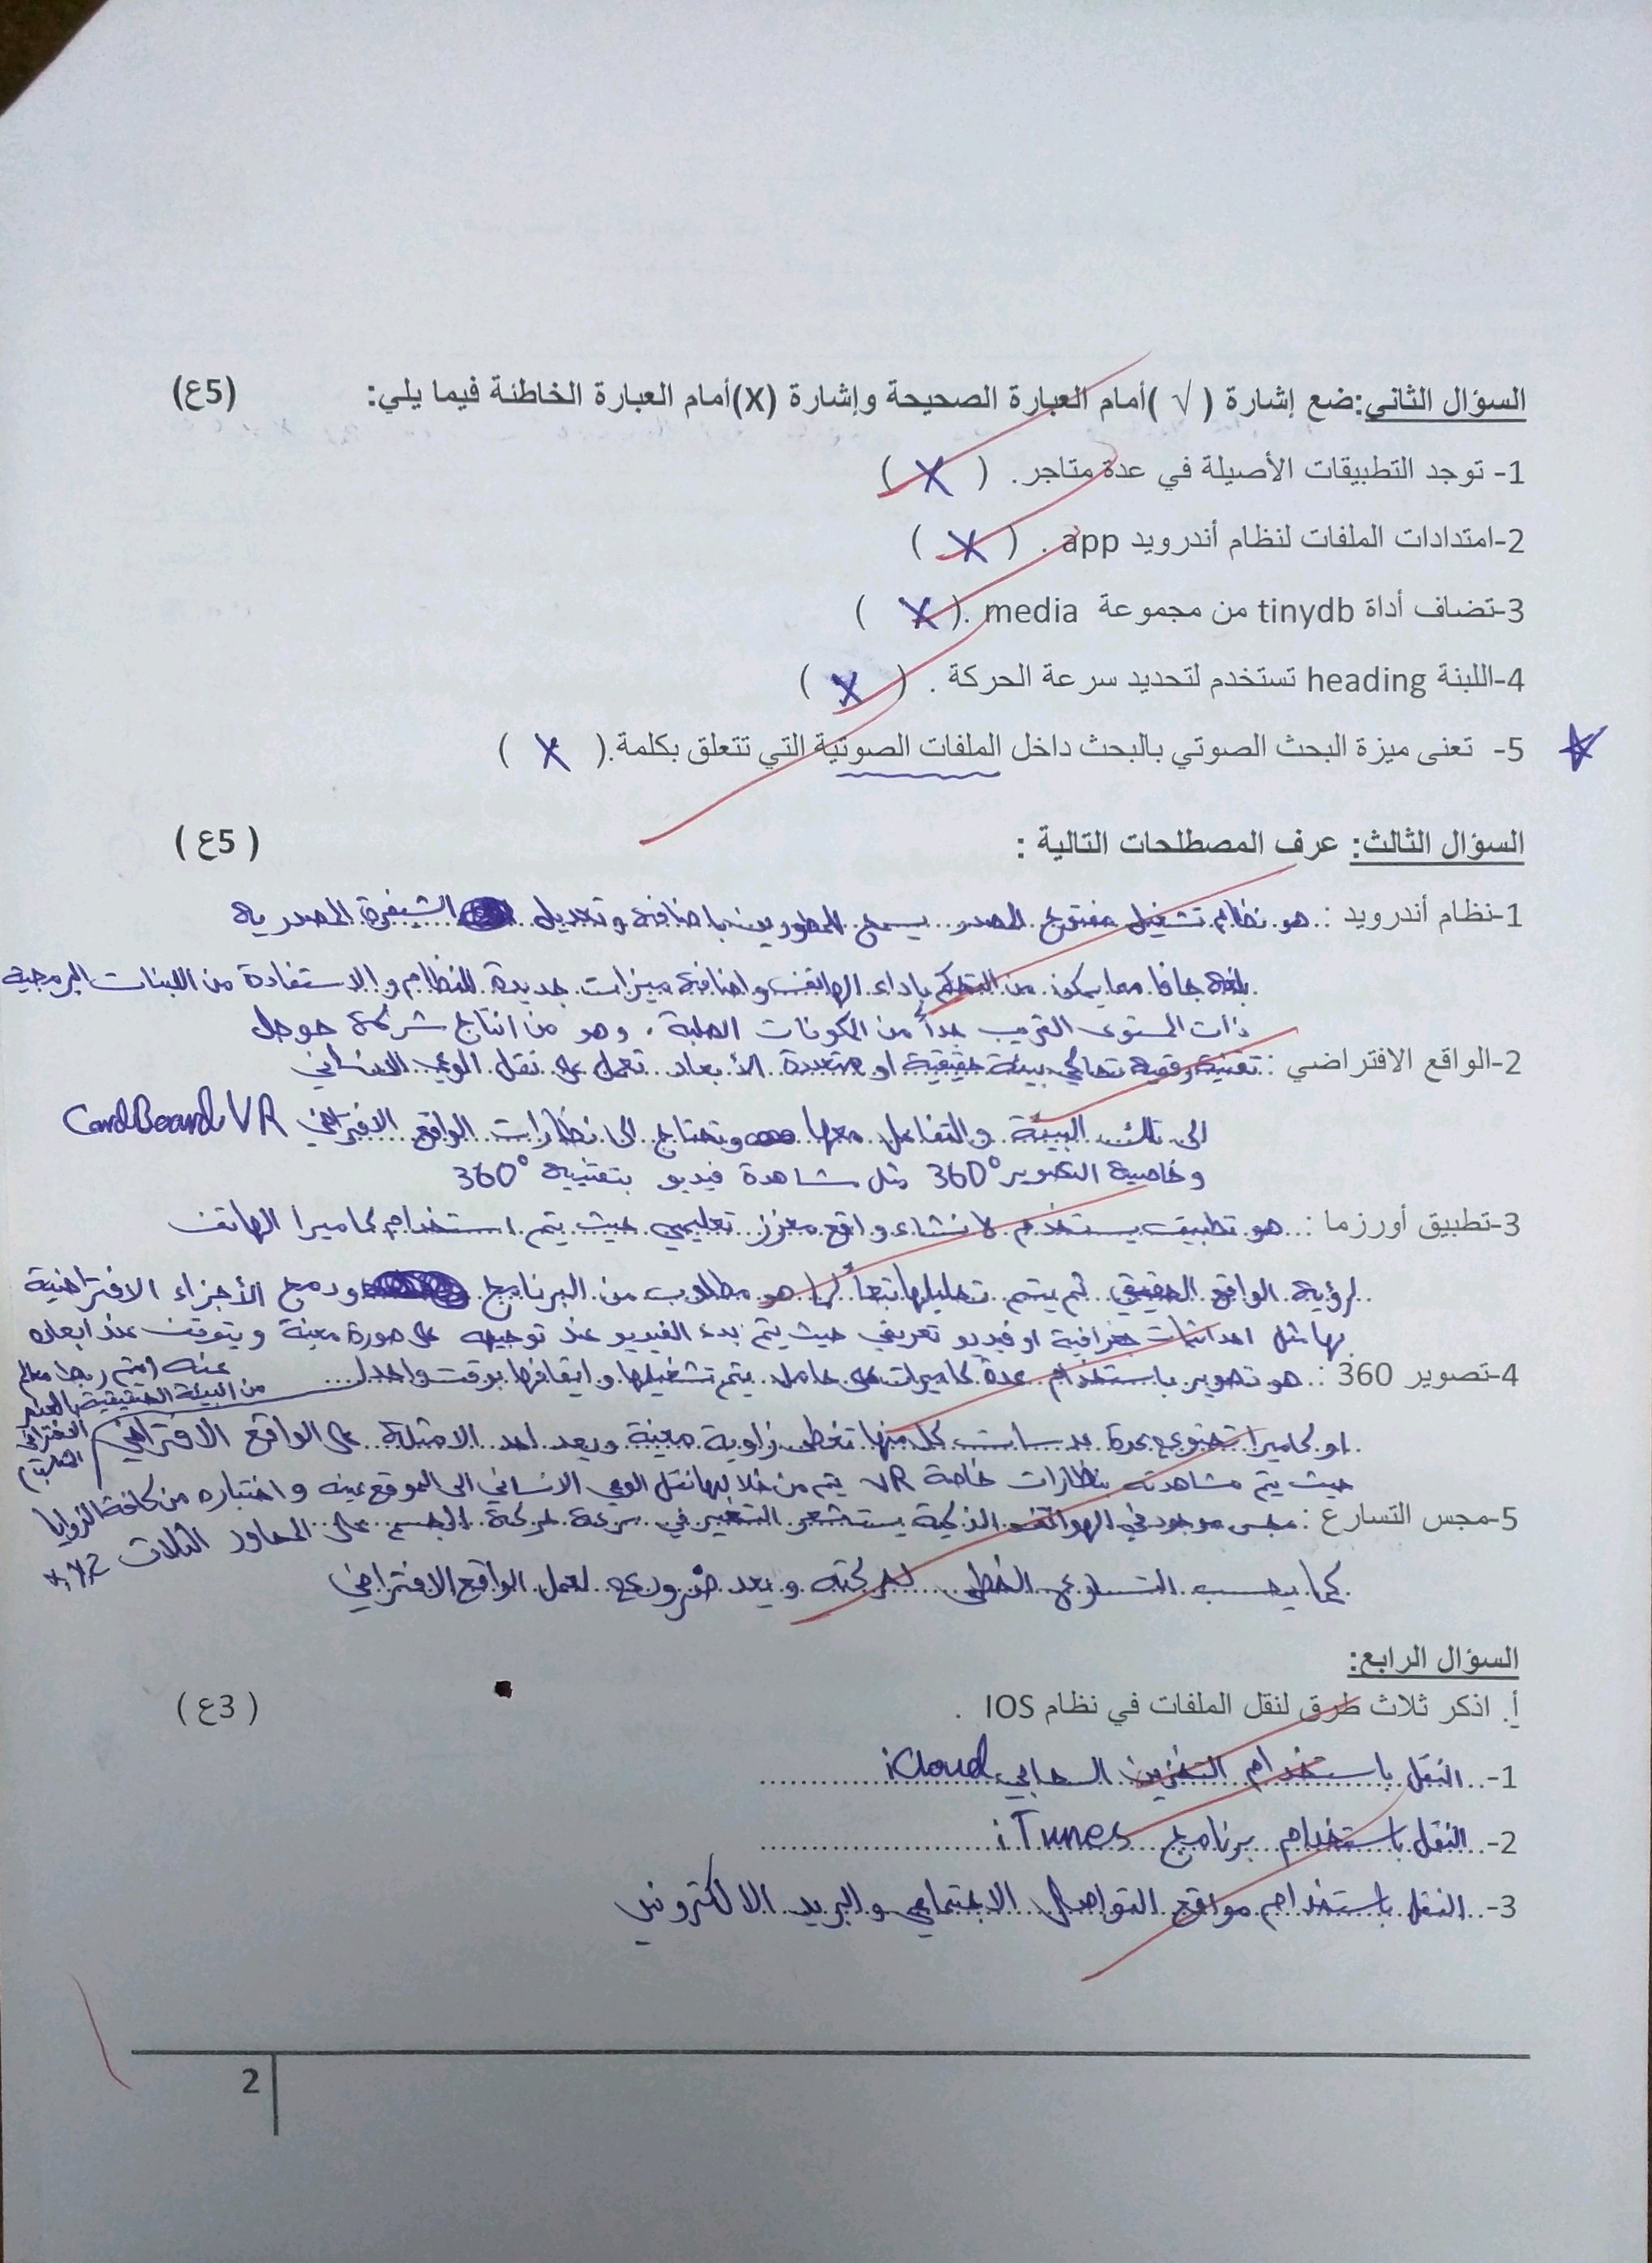 السؤال الثاني:ضع إشارة ( √ )أمام العبارة الصحيحة وإشارة (X)أمام العبارة الخاطئة فيما يلي: (5ع)
1- توجد التطبيقات الأصيلة في عدة متاجر. ( X )
2-امتدادات الملفات لنظام أندرويد app . ( X )
3-تضاف أداة tinydb من مجموعة media .( X )
4-اللبنة heading تستخدم لتحديد سرعة الحركة . ( X )
5- تعنى ميزة البحث الصوتي بالبحث داخل الملفات الصوتية التي تتعلق بكلمة.( X )
السؤال الثالث: عرف المصطلحات التالية : (5ع )
1-نظام أندرويد : هو نظام تشغيل مفتوح المصدر يسمح للمطورين باضافة وتعديل الشيفرة المصدرية
بلغة جافا مما يمكن من التحكم باداء الهاتف واضافة ميزات جديدة للنظام والاستفادة من اللبنات البرمجية
ذات المستوى القريب جداً من المكونات الصلبة . وهو من انتاج شركة جوجل
2-الواقع الافتراضي : تقنية رقمية تحاكي بيئة حقيقية او متعددة الأبعاد تعمل على نقل الوعي الانساني
الى تلك البيئة والتفاعل معها وتحتاج الى نظارات الواقع الافتراضي CardBoard VR
وخاصية التصوير 360° مثل مشاهدة فيديو بتقنية 360°
3-تطبيق أورزما : هو تطبيق يستخدم لانشاء واقع معزز تعليمي حيث يتم استخدام كاميرا الهاتف
لرؤية الواقع الحقيقي ثم يتم تحليلها تبعاً لما هو مطلوب من البرنامج ودمج الأجزاء الافتراضية
بها مثل احداثيات جغرافية او فيديو تعريفي حيث يتم بدء الفيديو عند توجيهه على صورة معينة ويتوقف عند ابعاده
عنه
من البيئة الحقيقية
4-تصوير 360 : هو تصوير باستخدام عدة كاميرات على حامل يتم تشغيلها وايقافها بوقت واحد
او كاميرا تحتوي عدة عدسات كل منها تغطي زاوية معينة ويعد احد الامثلة على الواقع الافتراضي
حيث يتم مشاهدته بنظارات خاصة VR يتم من خلالها نقل الوعي الانساني الى الموقع عينه واختباره من كافة الزوايا
5-مجس التسارع : مجس موجود في الهواتف الذكية يستشعر التغير في سرعة حركة الجسم على المحاور الثلاث x,y,z
كما يحسب التسارع الخطي لحركته ويعد ضروري لعمل الواقع الافتراضي
السؤال الرابع:
أ. اذكر ثلاث طرق لنقل الملفات في نظام IOS . ( 3ع )
1- النقل باستخدام التخزين السحابي iCloud
2- النقل باستخدام برنامج iTunes
3- النقل باستخدام مواقع التواصل الاجتماعي والبريد الالكتروني
2